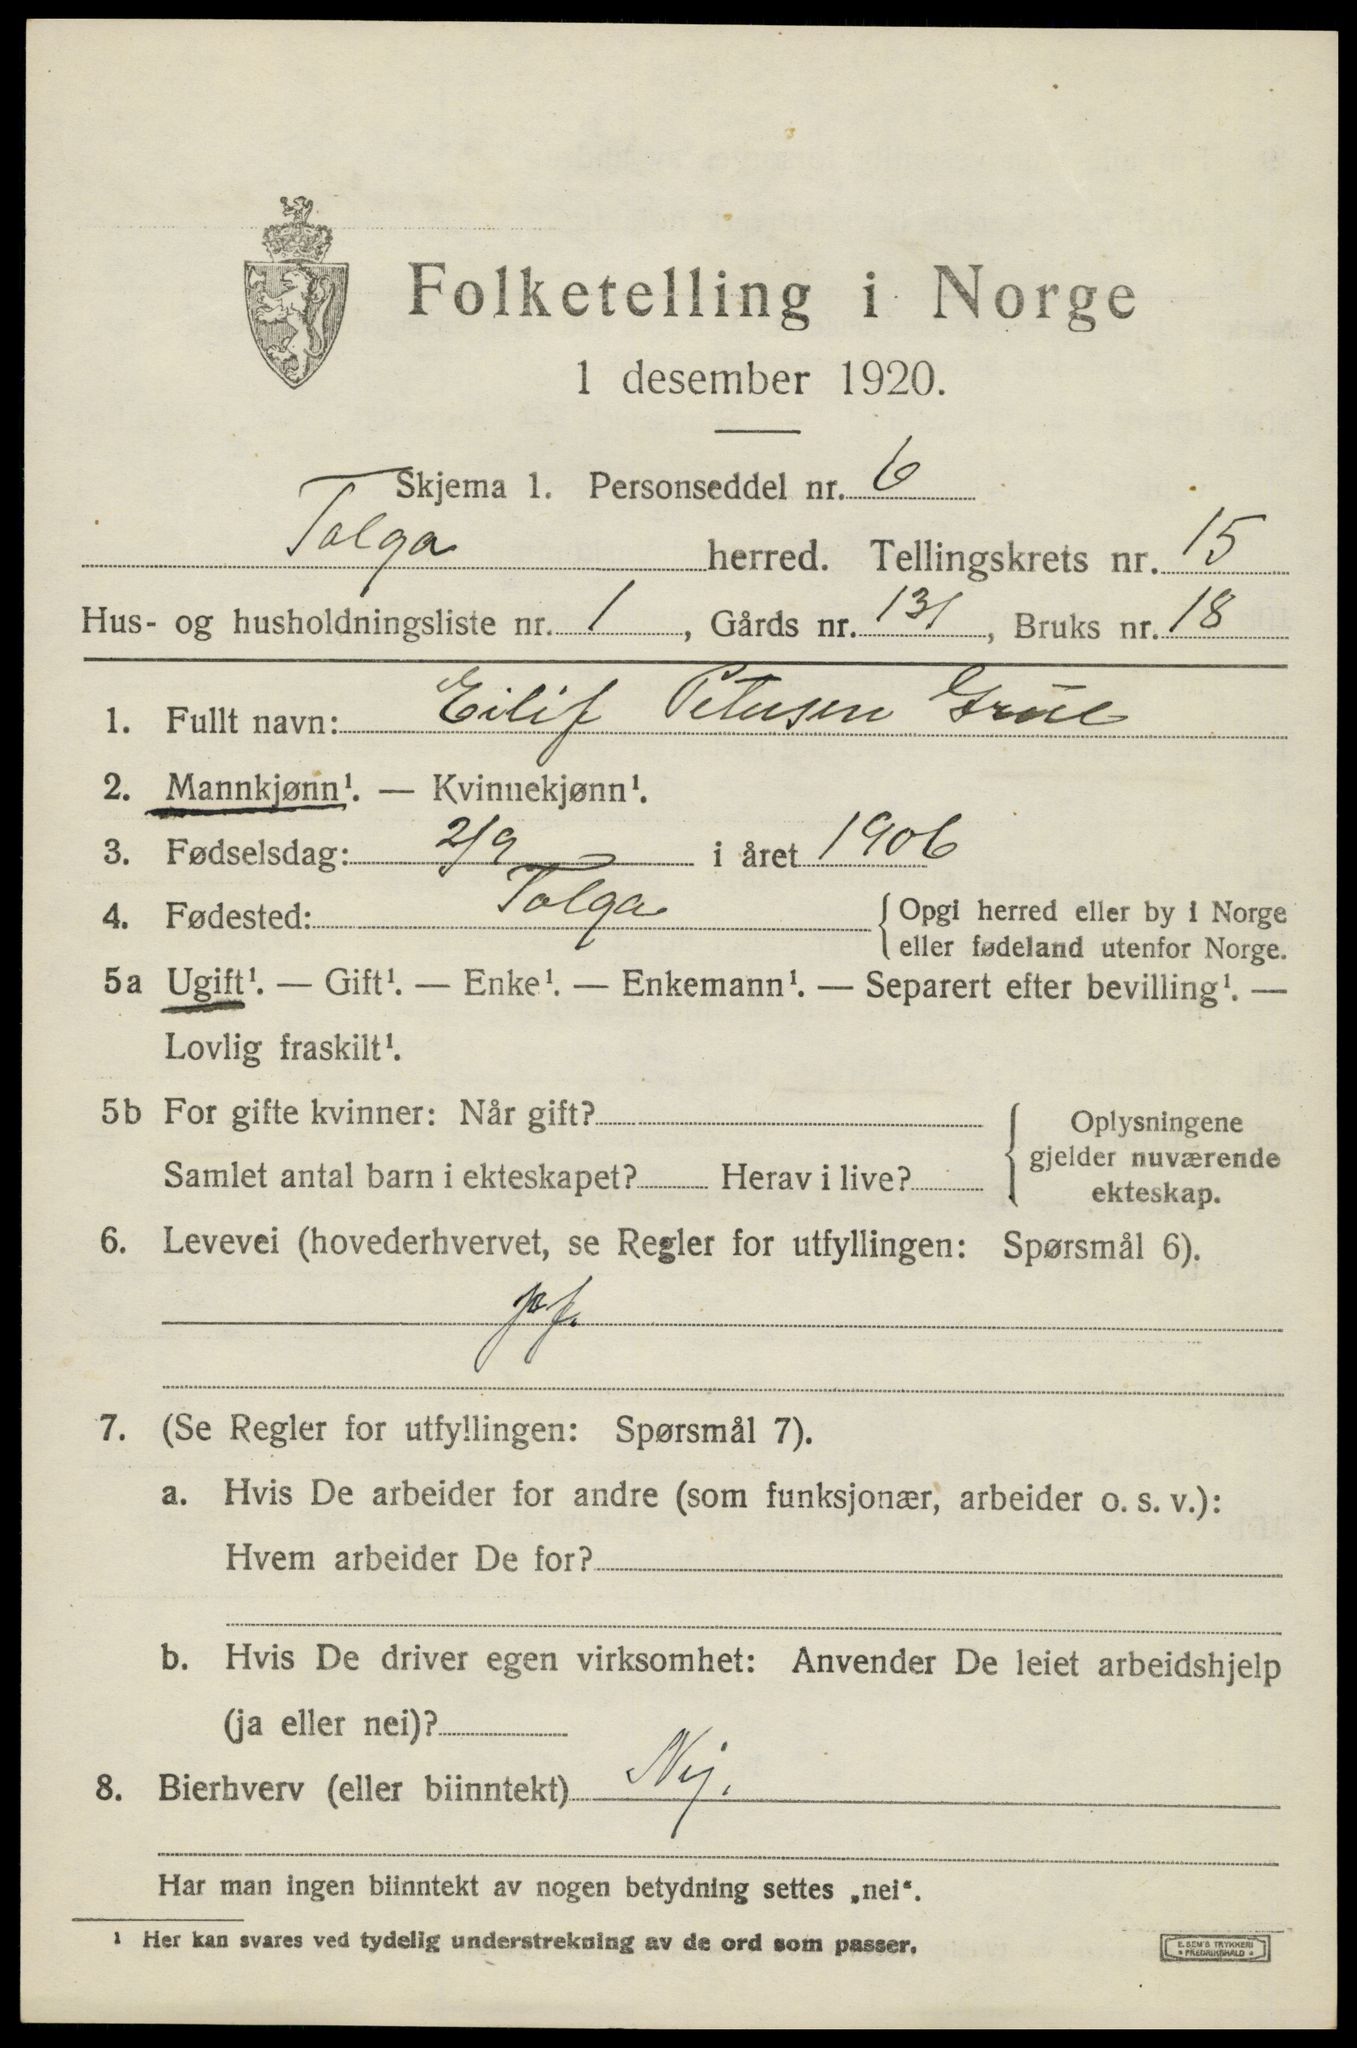 Folketelling i Norge
1 desember 1920.
Skjema 1. Personseddel nr. 6
Tolga herred. Tellingskrets nr. 15
Hus- og husholdningsliste nr. 1, Gårds nr. 131, Bruks nr. 18
1. Fullt navn: Eilif Petersen
2. Mannkjønn¹. — Kvinnekjønn¹.
3. Fødselsdag: 2/9 i året 1906
4. Fødested: Tolga { Opgi herred eller by i Norge
eller fødeland utenfor Norge.
5a Ugift¹. — Gift¹. — Enke¹. — Enkemann¹. — Separert efter bevilling¹. —
Lovlig fraskilt¹.
5b For gifte kvinner: Når gift? { Oplysningene
gjelder nuværende
Samlet antal barn i ekteskapet? Herav i live?
ekteskap.
6. Levevei (hovederhvervet, se Regler for utfyllingen: Spørsmål 6).
7. (Se Regler for utfyllingen: Spørsmål 7).
a. Hvis De arbeider for andre (som funksjonær, arbeider o. s. v.):
Hvem arbeider De for?
b. Hvis De driver egen virksomhet: Anvender De leiet arbeidshjelp
(ja eller nei)?
8. Bierhverv (eller biinntekt) Nej.
Har man ingen biinntekt av nogen betydning settes „nei“.
¹ Her kan svares ved tydelig understrekning av de ord som passer.
E. SEM'S TRYKKERI
• FREDRIKSHALD •